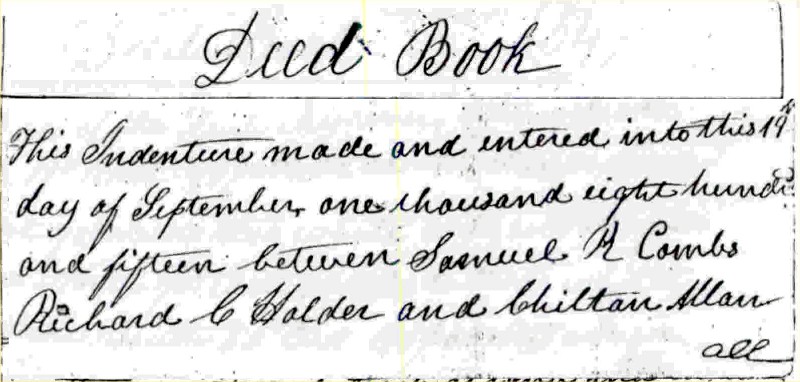 Deed Book
This Indenture made and entered into this 19th
day of September, one thousand eight hundd
and fifteen between Samuel R Combs
Richard C Holder and Chiltan Allan
all